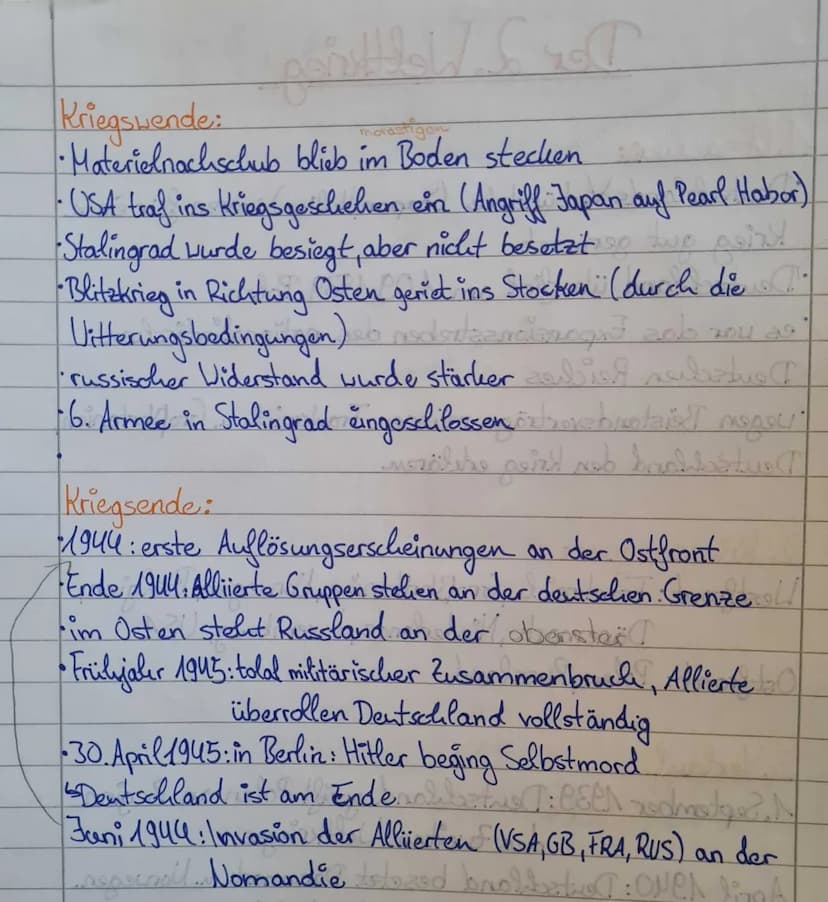 Kriegswende:
morastigen
· Materielnachschub blieb im Boden stecken
· USA traf ins Kriegsgeschehen ein (Angriff Japan auf Pearl Habor)
· Stalingrad wurde besiegt, aber nicht besetzt
· Blitzkrieg in Richtung Osten geriet ins Stocken (durch die
Witterungsbedingungen)
· russischer Widerstand wurde stärker
· 6. Armee in Stalingrad eingeschlossen
Kriegsende:
· 1944: erste Auflösungserscheinungen an der Ostfront
· Ende 1944: Alliierte Gruppen stehen an der deutschen Grenze
· im Osten steht Russland an der
· Frühjahr 1945: total militärischer Zusammenbruch, Allierte
überrollen Deutschland vollständig
· 30. April 1945: in Berlin: Hitler beging Selbstmord
↳ Deutschland ist am Ende
Juni 1944: Invasion der Alliierten (USA, GB, FRA, RUS) an der
Nomandie